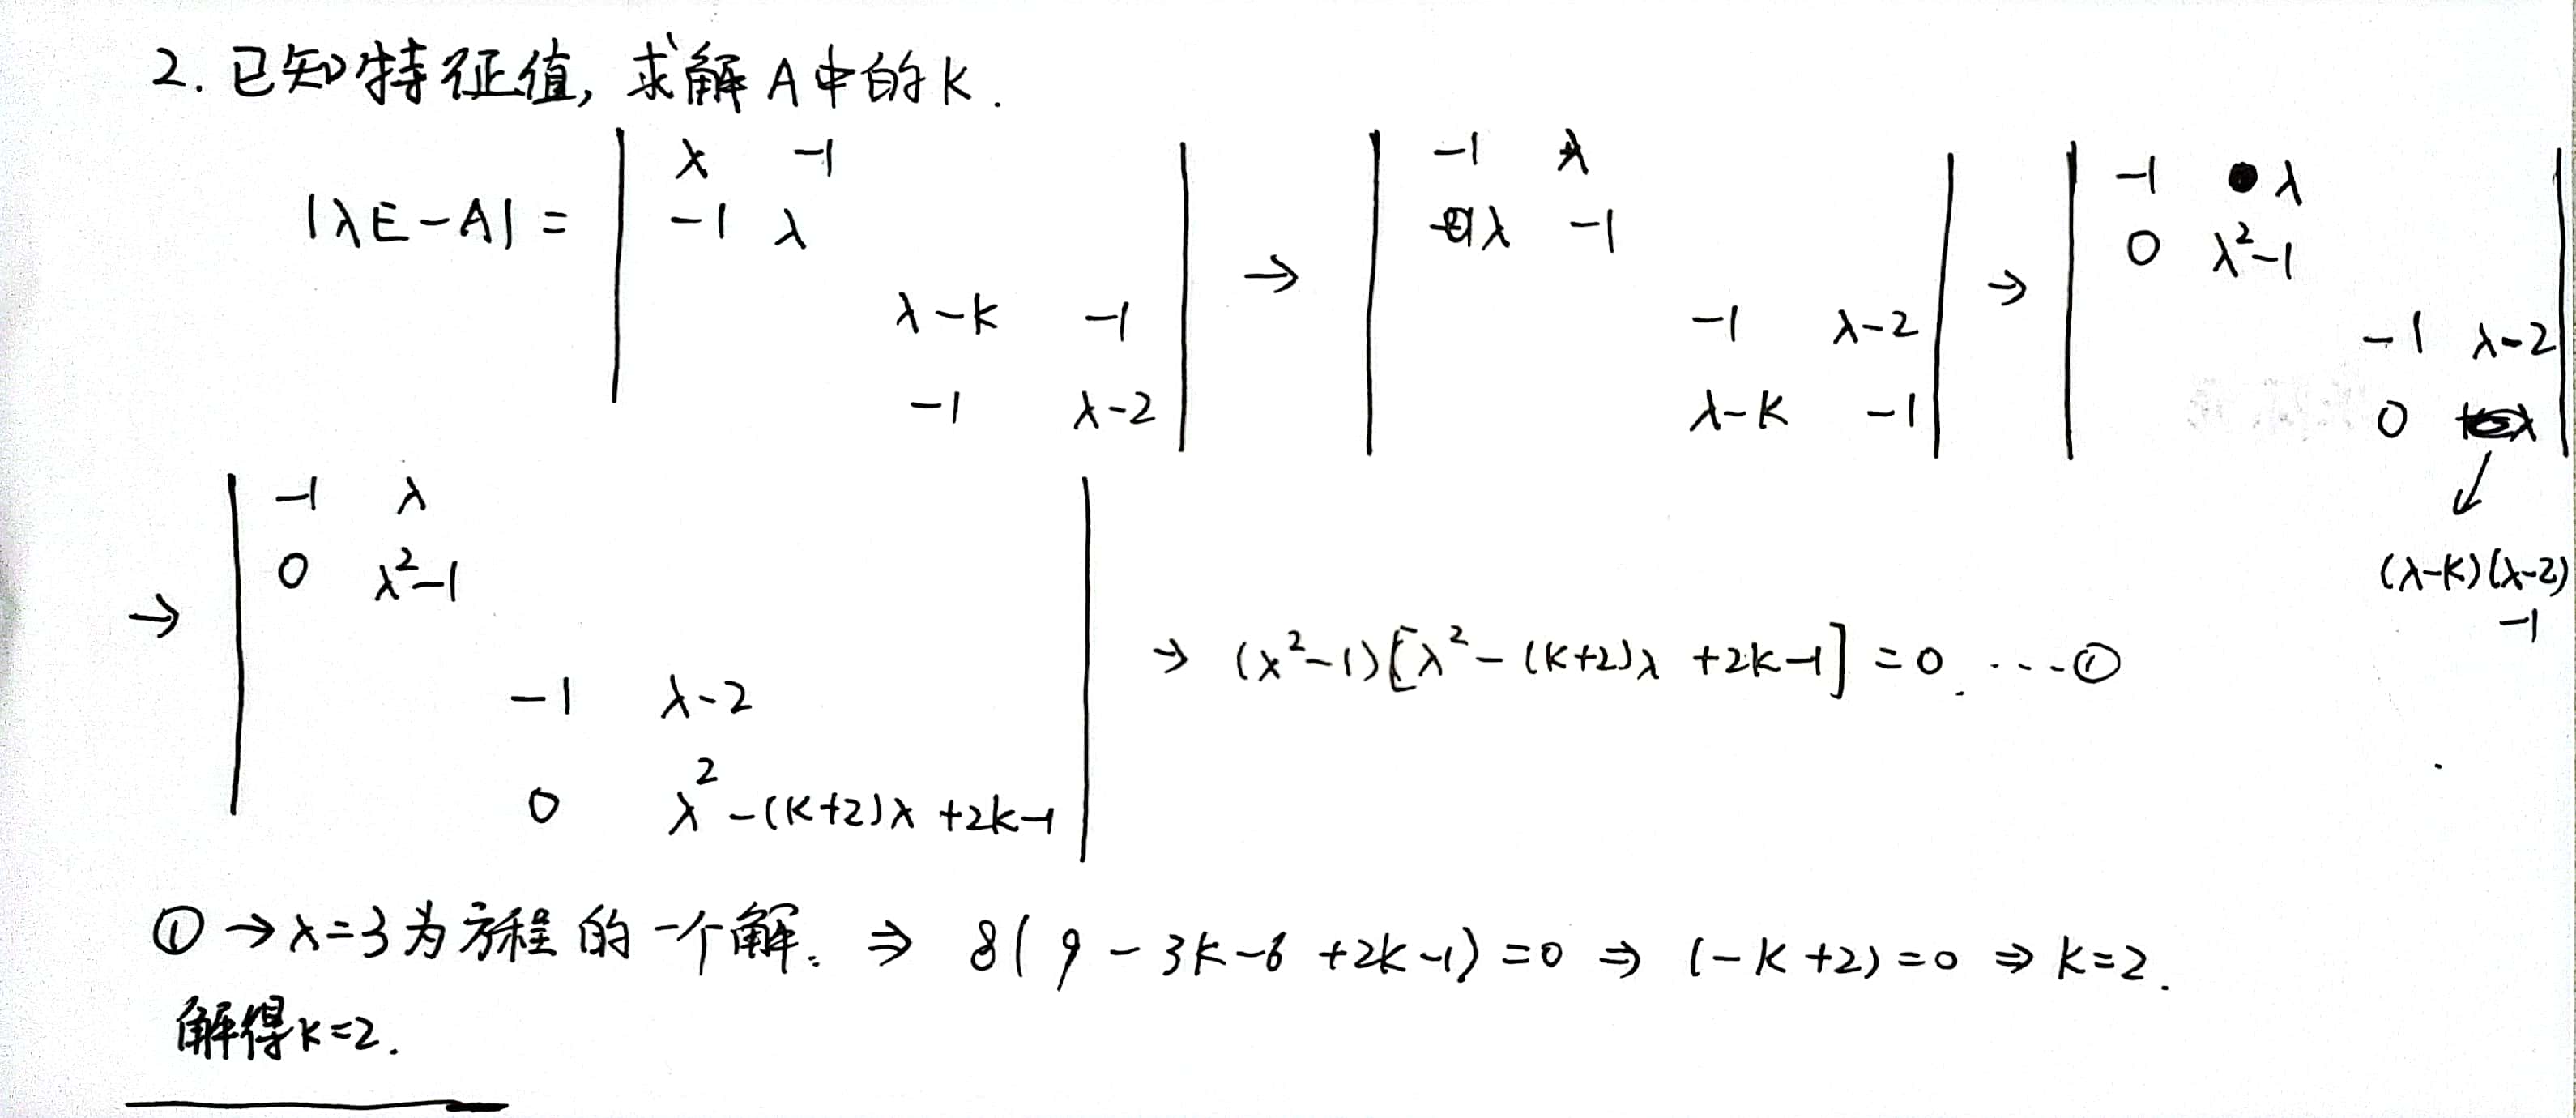 2. 已知特征值, 求解A中的K.
|λE-A| = | λ -1 | → | -1 λ | → | -1 λ |
-1 λ λ -1 0 λ²-1
λ-K -1 -1 λ-2 -1 λ-2
-1 λ-2 λ-K -1 0
↙
(λ-K)(λ-2)
-1
→ | -1 λ |
0 λ²-1
→ (λ²-1)[λ²-(K+2)λ+2K-1] = 0. ...①
-1 λ-2
0 λ²-(K+2)λ+2K-1
① → λ=3为方程的一个解. ⇒ 8(9-3K-6+2K-1)=0 ⇒ (-K+2)=0 ⇒ K=2.
解得K=2.